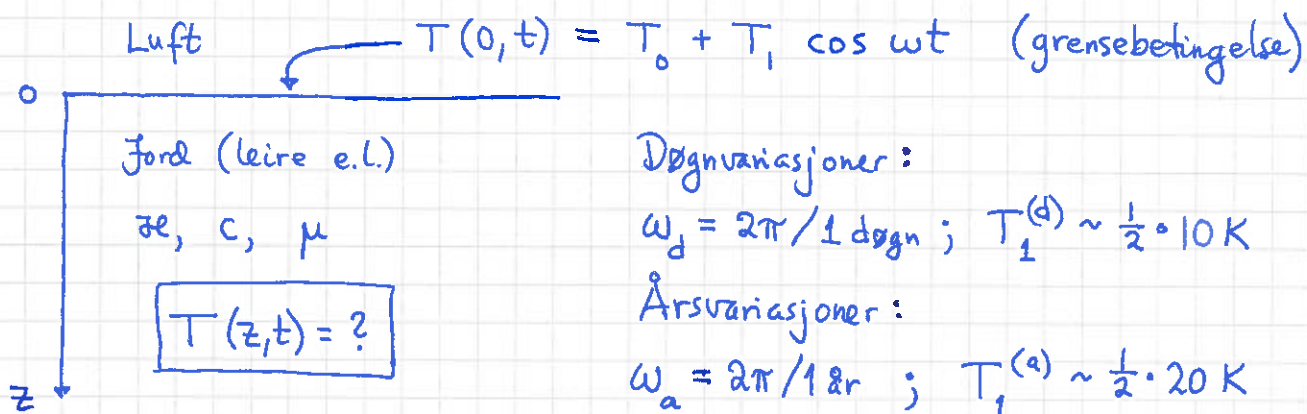 Luft T(0,t) = T₀ + T₁ cos ωt (grensebetingelse)
0
Jord (leire e.l.)
ϰ, c, μ
T(z,t) = ?
z
Døgnvariasjoner:
ω_d = 2π/1 døgn ; T₁^(d) ~ ½ · 10 K
Årsvariasjoner:
ω_a = 2π/1 år ; T₁^(a) ~ ½ · 20 K